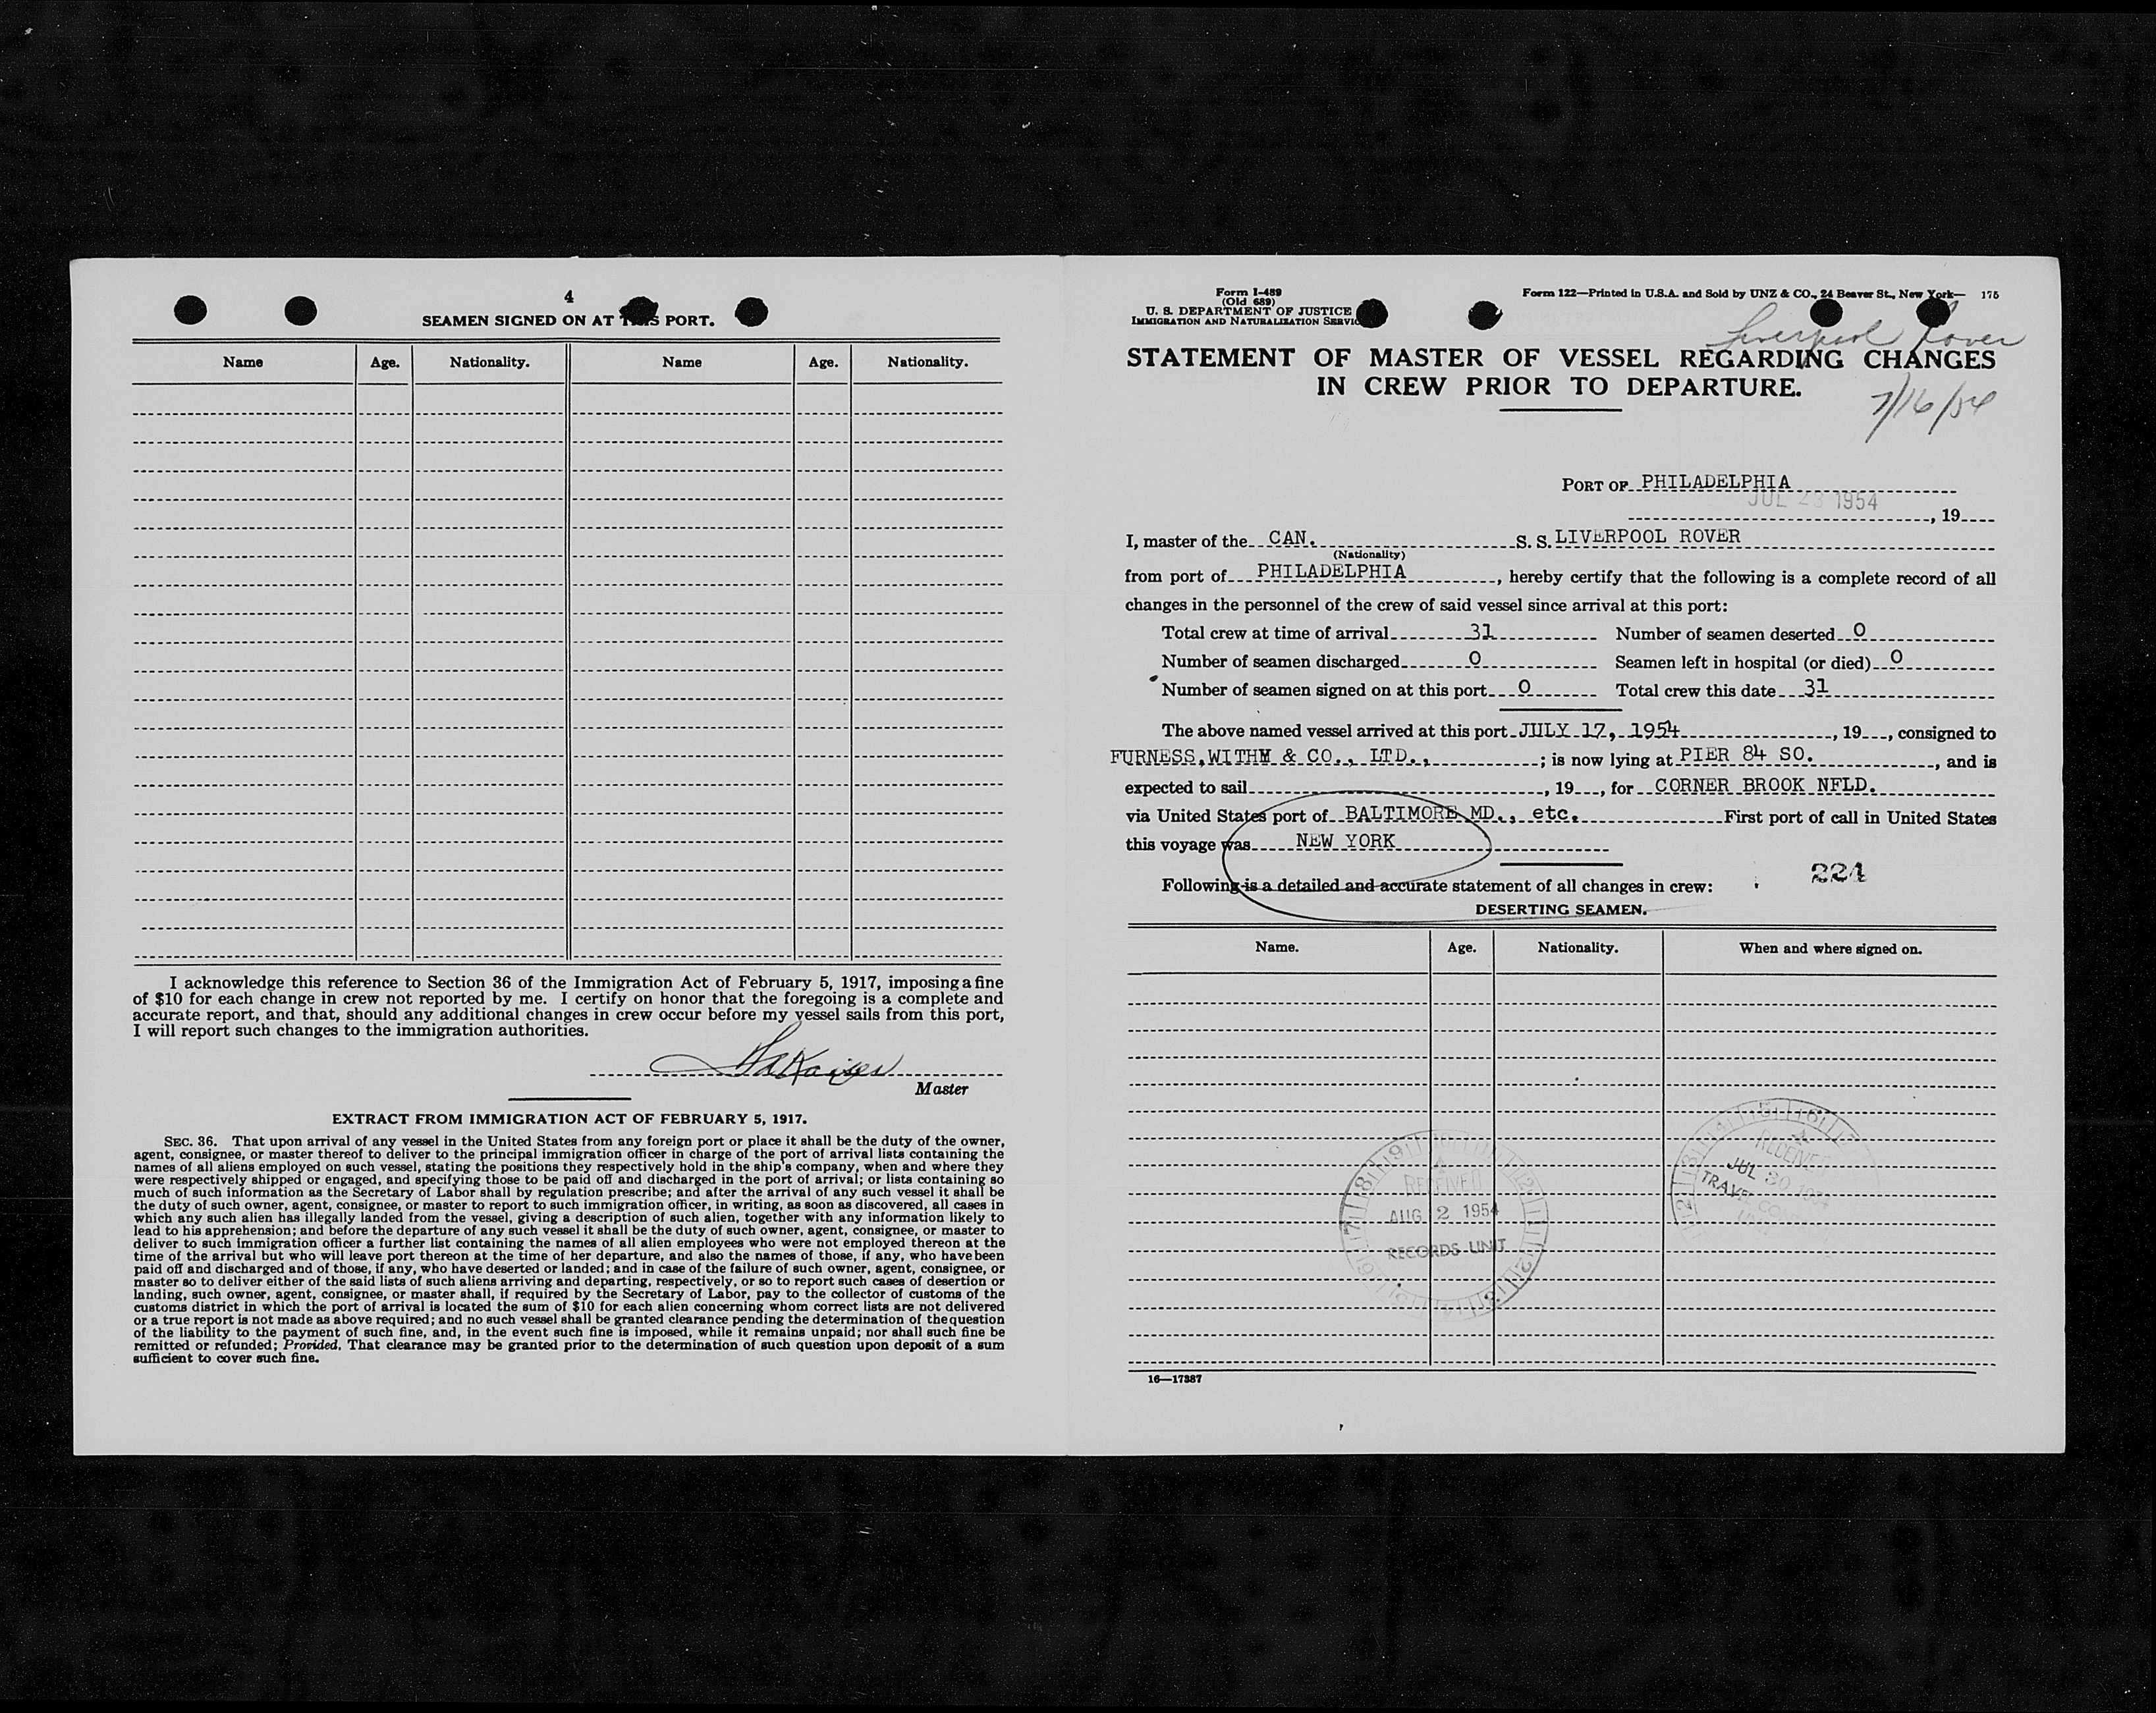 4
SEAMEN SIGNED ON AT THIS PORT.
Name Age. Nationality. Name Age. Nationality.
I acknowledge this reference to Section 36 of the Immigration Act of February 5, 1917, imposing a fine
of $10 for each change in crew not reported by me. I certify on honor that the foregoing is a complete and
accurate report, and that, should any additional changes in crew occur before my vessel sails from this port,
I will report such changes to the immigration authorities.
Master
EXTRACT FROM IMMIGRATION ACT OF FEBRUARY 5, 1917.
SEC. 36. That upon arrival of any vessel in the United States from any foreign port or place it shall be the duty of the owner,
agent, consignee, or master thereof to deliver to the principal immigration officer in charge of the port of arrival lists containing the
names of all aliens employed on such vessel, stating the positions they respectively hold in the ship's company, when and where they
were respectively shipped or engaged, and specifying those to be paid off and discharged in the port of arrival; or lists containing so
much of such information as the Secretary of Labor shall by regulation prescribe; and after the arrival of any such vessel it shall be
the duty of such owner, agent, consignee, or master to report to such immigration officer, in writing, as soon as discovered, all cases in
which any such alien has illegally landed from the vessel, giving a description of such alien, together with any information likely to
lead to his apprehension; and before the departure of any such vessel it shall be the duty of such owner, agent, consignee, or master to
deliver to such immigration officer a further list containing the names of all alien employees who were not employed thereon at the
time of the arrival but who will leave port thereon at the time of her departure, and also the names of those, if any, who have been
paid off and discharged and of those, if any, who have deserted or landed; and in case of the failure of such owner, agent, consignee, or
master so to deliver either of the said lists of such aliens arriving and departing, respectively, or so to report such cases of desertion or
landing, such owner, agent, consignee, or master shall, if required by the Secretary of Labor, pay to the collector of customs of the
customs district in which the port of arrival is located the sum of $10 for each alien concerning whom correct lists are not delivered
or a true report is not made as above required; and no such vessel shall be granted clearance pending the determination of the question
of the liability to the payment of such fine, and, in the event such fine is imposed, while it remains unpaid; nor shall such fine be
remitted or refunded; Provided, That clearance may be granted prior to the determination of such question upon deposit of a sum
sufficient to cover such fine.
Form I-489
(Old 689)
U. S. DEPARTMENT OF JUSTICE
IMMIGRATION AND NATURALIZATION SERVICE
Form 122—Printed in U.S.A. and Sold by UNZ & CO., 24 Beaver St., New York— 175
Liverpool Rover
STATEMENT OF MASTER OF VESSEL REGARDING CHANGES
IN CREW PRIOR TO DEPARTURE.
7/16/54
PORT OF PHILADELPHIA
JUL 1954
, 19
I, master of the CAN. S. S. LIVERPOOL ROVER
(Nationality)
from port of PHILADELPHIA, hereby certify that the following is a complete record of all
changes in the personnel of the crew of said vessel since arrival at this port:
Total crew at time of arrival 31 Number of seamen deserted 0
Number of seamen discharged 0 Seamen left in hospital (or died) 0
Number of seamen signed on at this port 0 Total crew this date 31
The above named vessel arrived at this port JULY 17, 1954, 19, consigned to
FURNESS, WITHY & CO., LTD., ; is now lying at PIER 84 SO., and is
expected to sail, 19, for CORNER BROOK NFLD.
via United States port of BALTIMORE MD., etc. First port of call in United States
this voyage was NEW YORK
224
Following is a detailed and accurate statement of all changes in crew:
DESERTING SEAMEN.
Name. Age. Nationality. When and where signed on.
RECEIVED
AUG 2 1954
RECORDS UNIT
RECEIVED
JUL 30 1954
TRAVEL
16—17387